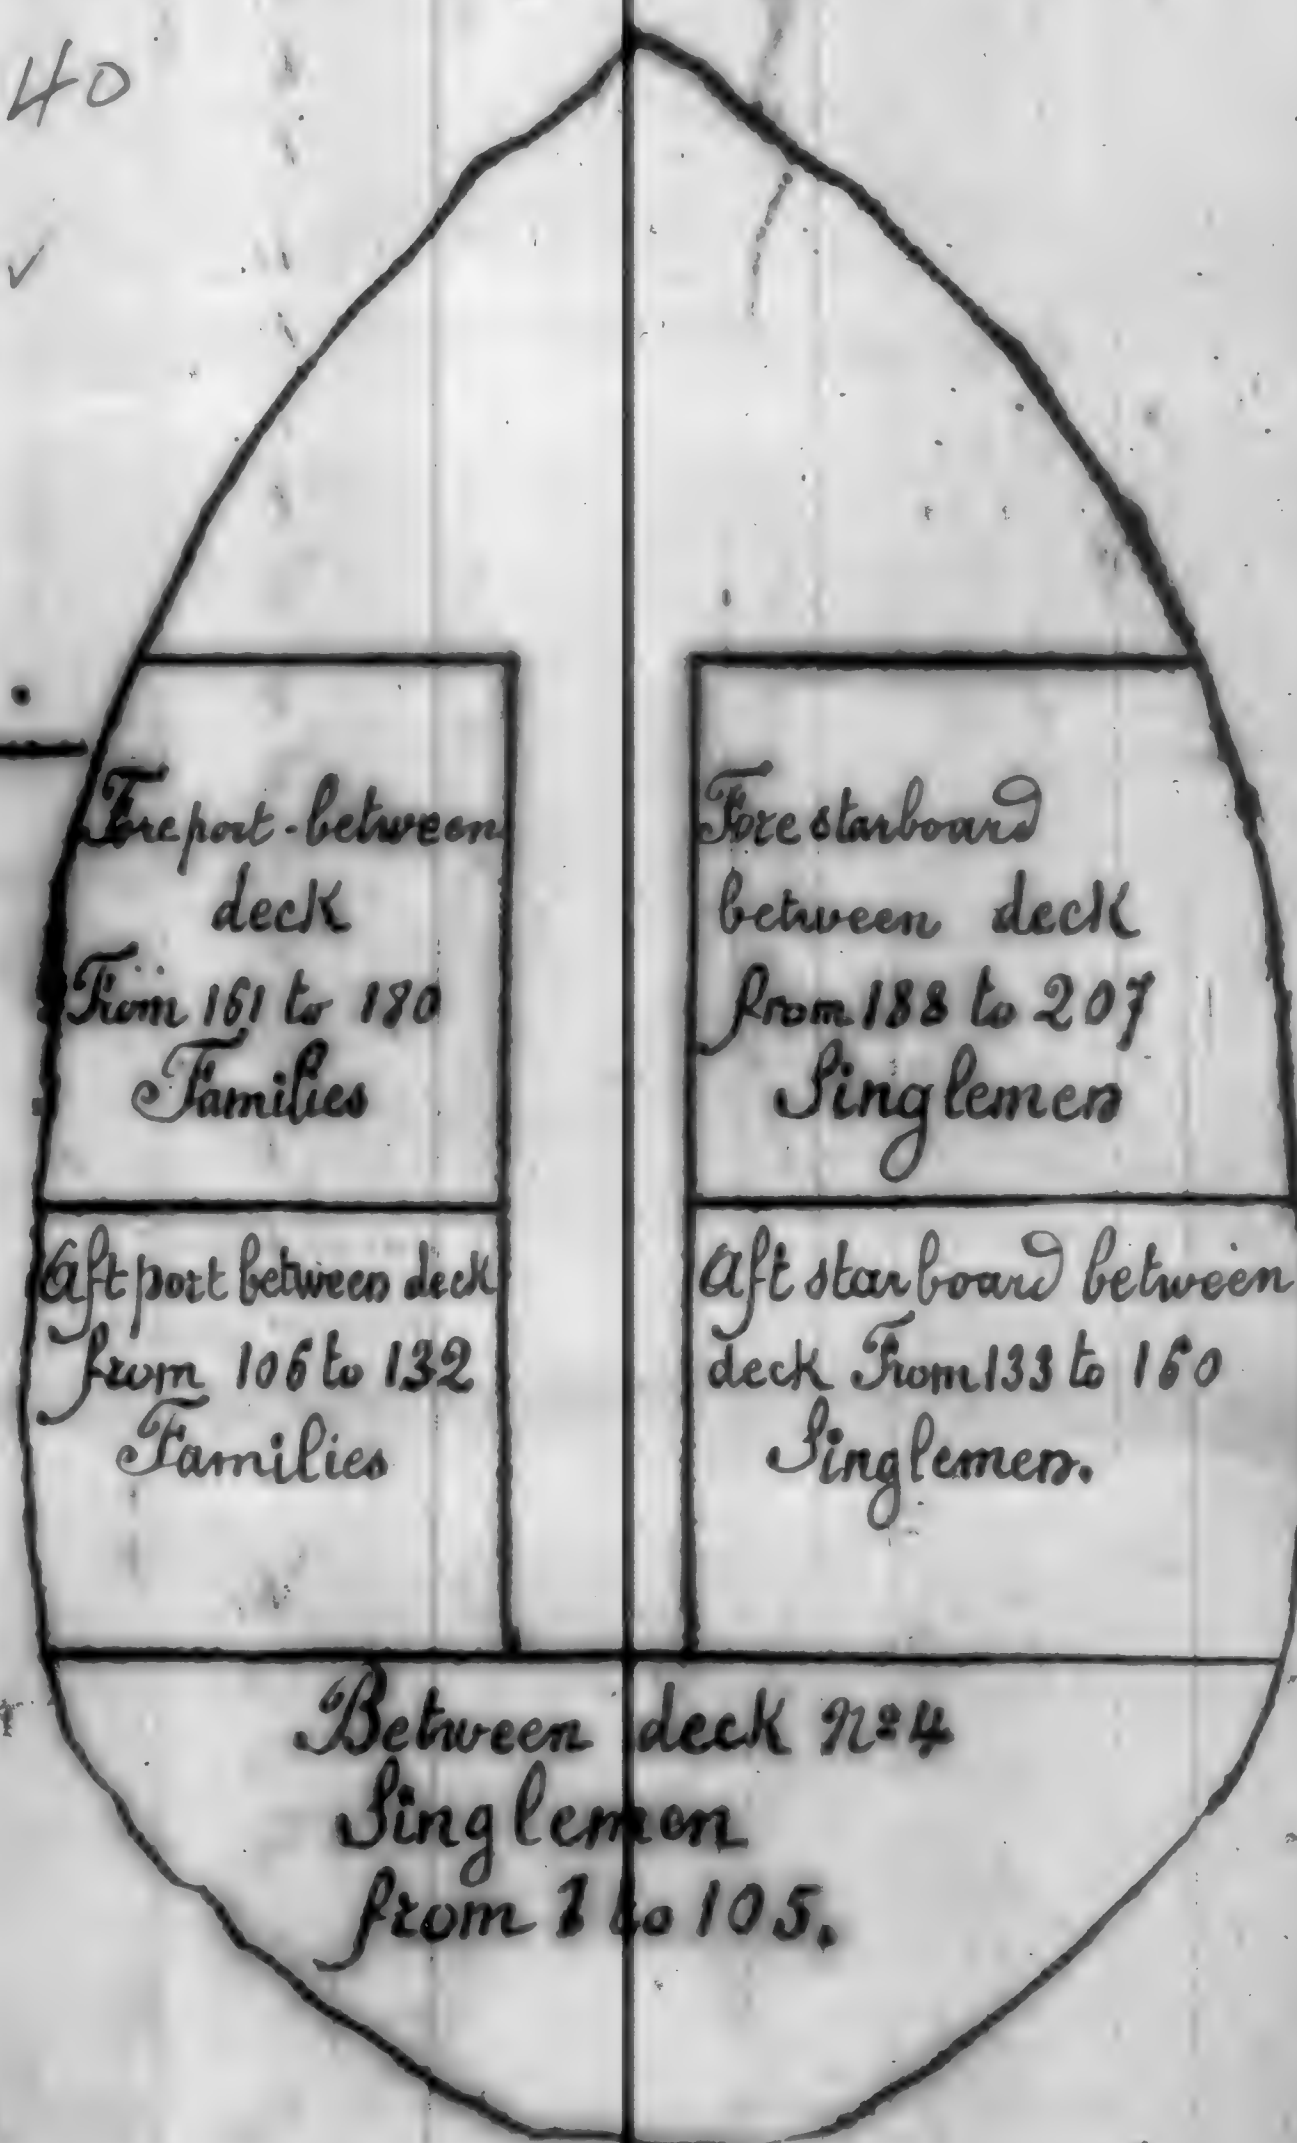 40
Foreport-between
deck
From 161 to 180
Families
Fore starboard
between deck
from 188 to 207
Singlemen
Aft port between deck
from 106 to 132
Families
Aft starboard between
deck From 133 to 160
Singlemen.
Between deck No 4
Singlemen
from 1 to 105.